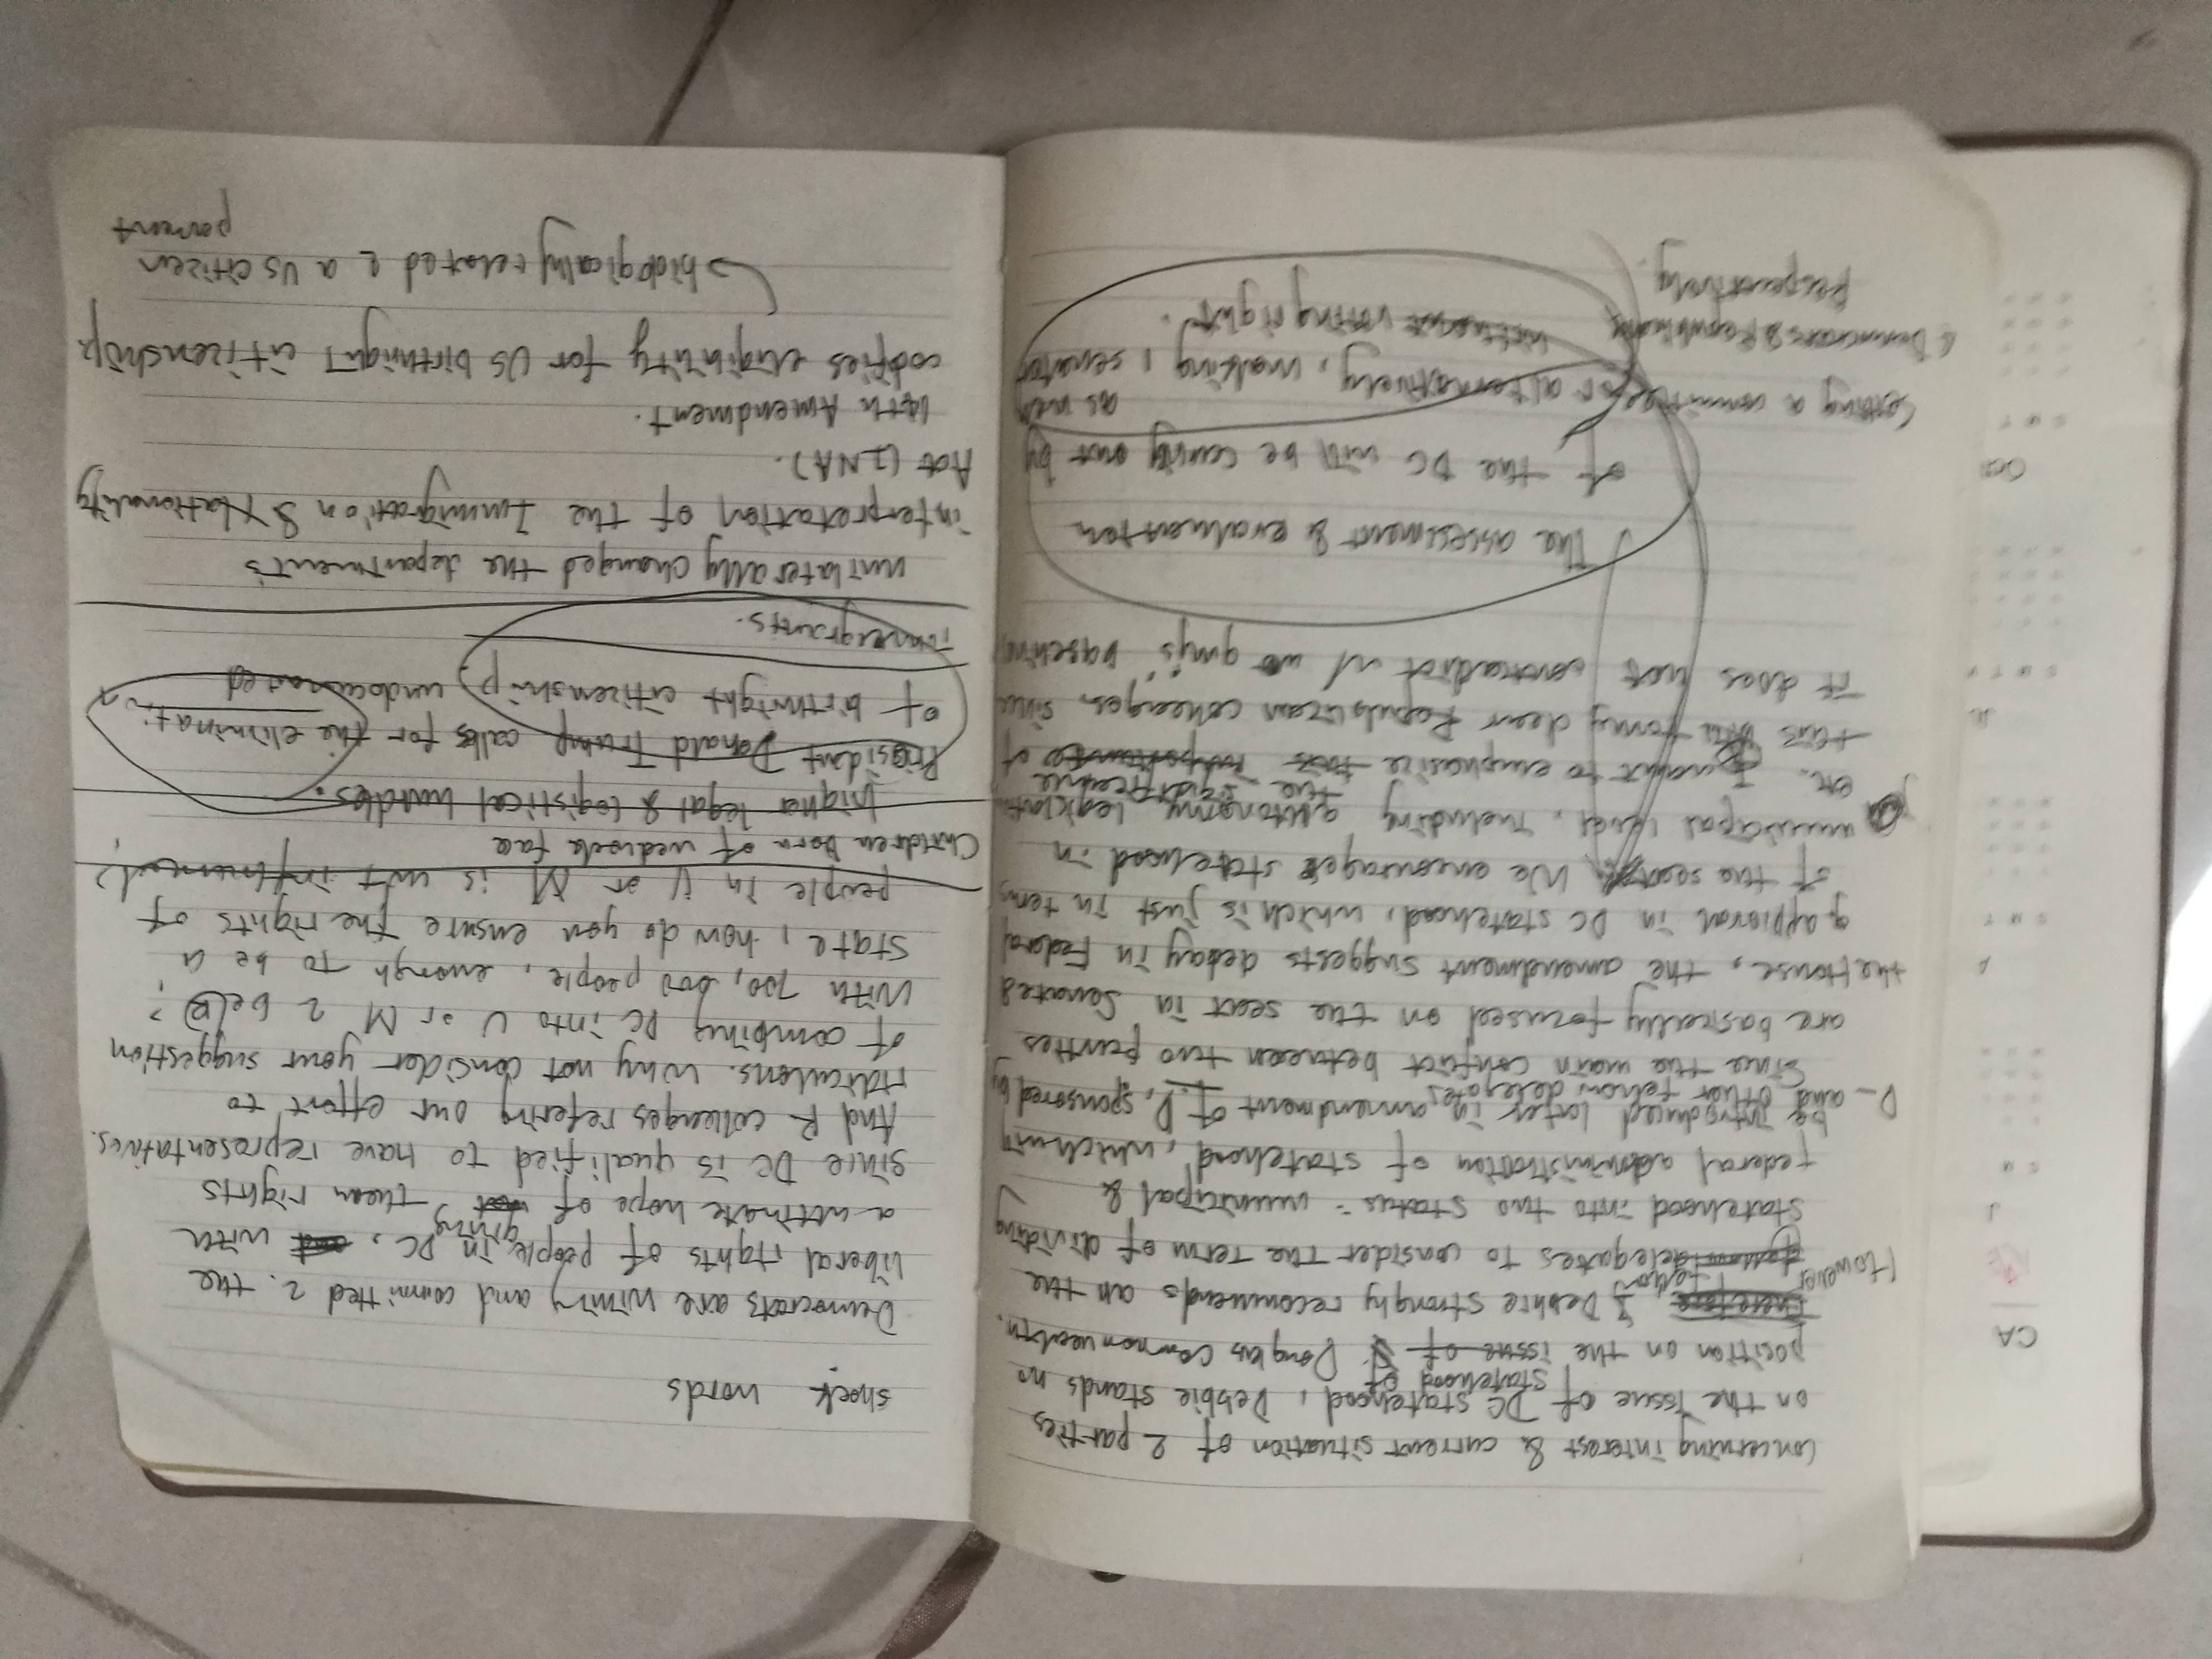 concerning interest & current situation of 2 parties
on the issue of DC statehood, Debbie stands no
statehood of
position on the issue of Douglas Commonwealth.
However
Therefore, I Debbie strongly recommends all the
fellow
delegates to consider the term of dividing
statehood into two status: municipal &
federal administration of statehood, which will
be introduced later in amendment of D, sponsored by
D- and other fellow delegates.
Since the main conflict between two parties
are basically focused on the seat in Senate &
the House, the amendment suggests delay in Federal
approval in DC statehood, which is just in term
of the seat. We encourages statehood in
municipal level, including autonomy legislature
the significance
etc. I want to emphasize this importance of
this to my dear Republican colleages, since
it does not contradict w/ guys' baseline
The assessment & evaluation
of the DC will be carry out by
as well
setting a committee or alternatively, making 1 senator
Democrats & Republicans
without voting right.
Respectively.
shock words
Democrats are winning and committed 2. the
liberal rights of people in DC, with
giving
a ultimate hope of them rights
since DC is qualified to have representatives.
And R colleages refering our effort to
ridiculous. Why not consider your suggestion
of combing DC into V or M 2 be ?
With 700,000 people, enough to be a
state, how do you ensure the rights of
people in V or M is not infringed?
Children born of wedlock face
higher legal & logistical hurdles.
President Donald Trump calls for the elimination
of birthright citizenship undocumented
immigrants.
unilaterally changed the department's
interpretation of the Immigration & Nationality
Act (INA).
14th Amendment.
codifies eligibility for US birthright citizenship
biologically related 2 a US citizen
parent